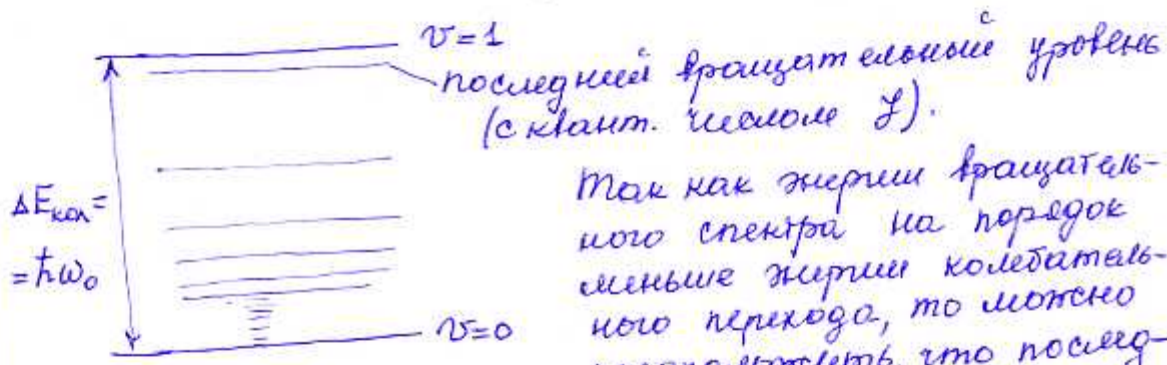 v=1
последний вращательный уровень
(с квант. числом J).
ΔEкол=
=ħω₀
Так как энергии вращатель-
ного спектра на порядок
меньше энергии колебатель-
ного перехода, то можно
что послед-
v=0